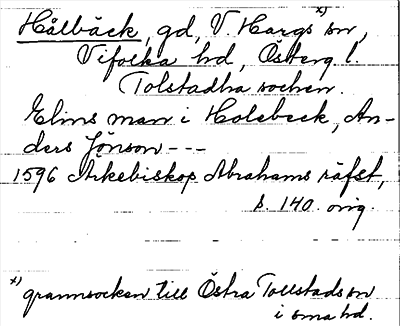 Hålbäck, gd, V. Hargs x) sn,
Vifolka hd, Österg l.
Tolstadha sochen.
Elins man i Holebeck, An-
ders Jönson - - -
1596 Ärkebiskop Abrahams räfst,
s. 140. orig.
x) grannsocken till Östra Tollstads sn
i sma hd.